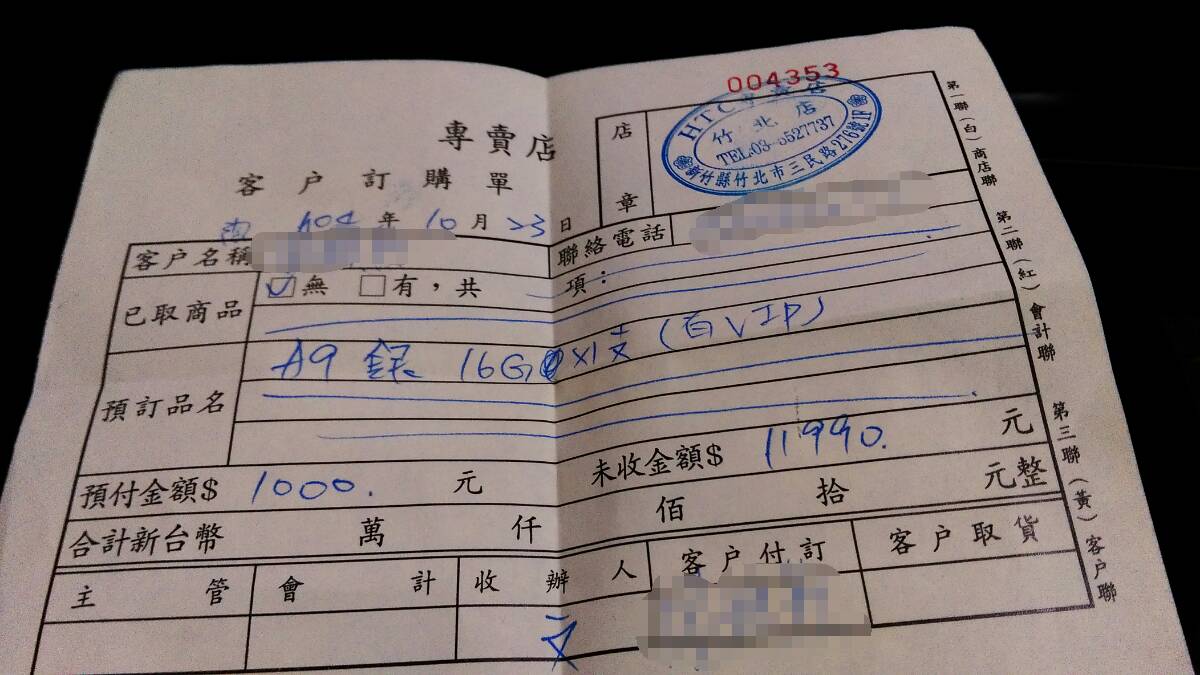 004353
HTC專賣店
竹北店
TEL:03-5527737
新竹縣竹北市三民路276號1F
專賣店
客戶訂購單
店章
404年10月23日
客戶名稱
聯絡電話
已取商品 ☑無 □有,共 項:
預訂品名
A9 銀 16G x1支 (白VIP)
預付金額$ 1000. 元
未收金額$ 11990. 元
合計新台幣 萬 仟 佰 拾 元整
主管 會計 收辦人 客戶付訂 客戶取貨
第一聯(白)商店聯 第二聯(紅)會計聯 第三聯(黃)客戶聯